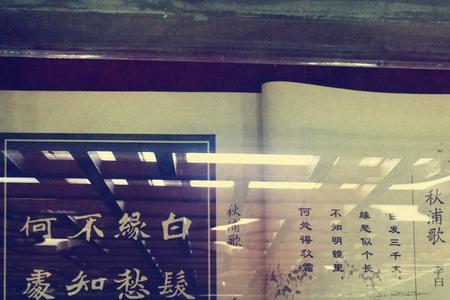 秋浦歌
李白
白发三千丈，
缘愁似个长。
不知明镜里，
何处得秋霜。
秋浦歌
白髮
緣愁
不知
何處